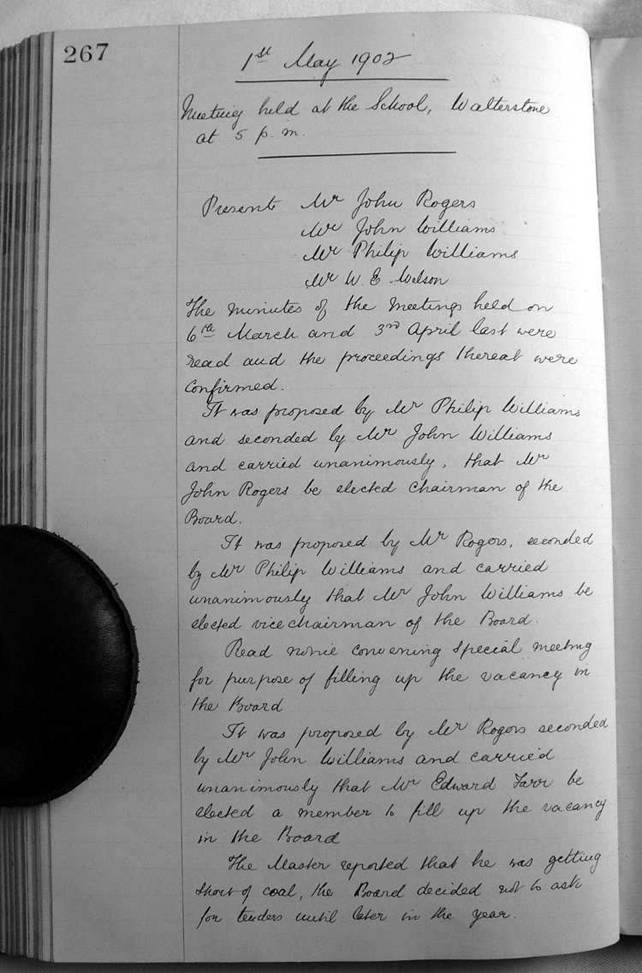 267
1st May 1902
Meeting held at the School, Walterstone
at 5 p.m.
Present Mr John Rogers
Mr John Williams
Mr Philip Williams
Mr W. E.
The minutes of the Meetings held on
6th March and 3rd April last were
read and the proceedings thereat were
confirmed.
It was proposed by Mr Philip Williams
and seconded by Mr John Williams
and carried unanimously, that Mr
John Rogers be elected Chairman of the
Board.
It was proposed by Mr Rogers, seconded
by Mr Philip Williams and carried
unanimously that Mr John Williams be
elected vice chairman of the Board.
Read notice convening special meeting
for purpose of filling up the vacancy in
the Board
It was proposed by Mr Rogers seconded
by Mr John Williams and carried
unanimously that Mr Edward Farr be
elected a member to fill up the vacancy
in the Board
The Master reported that he was getting
short of coal, the Board decided not to ask
for tenders until later in the year.